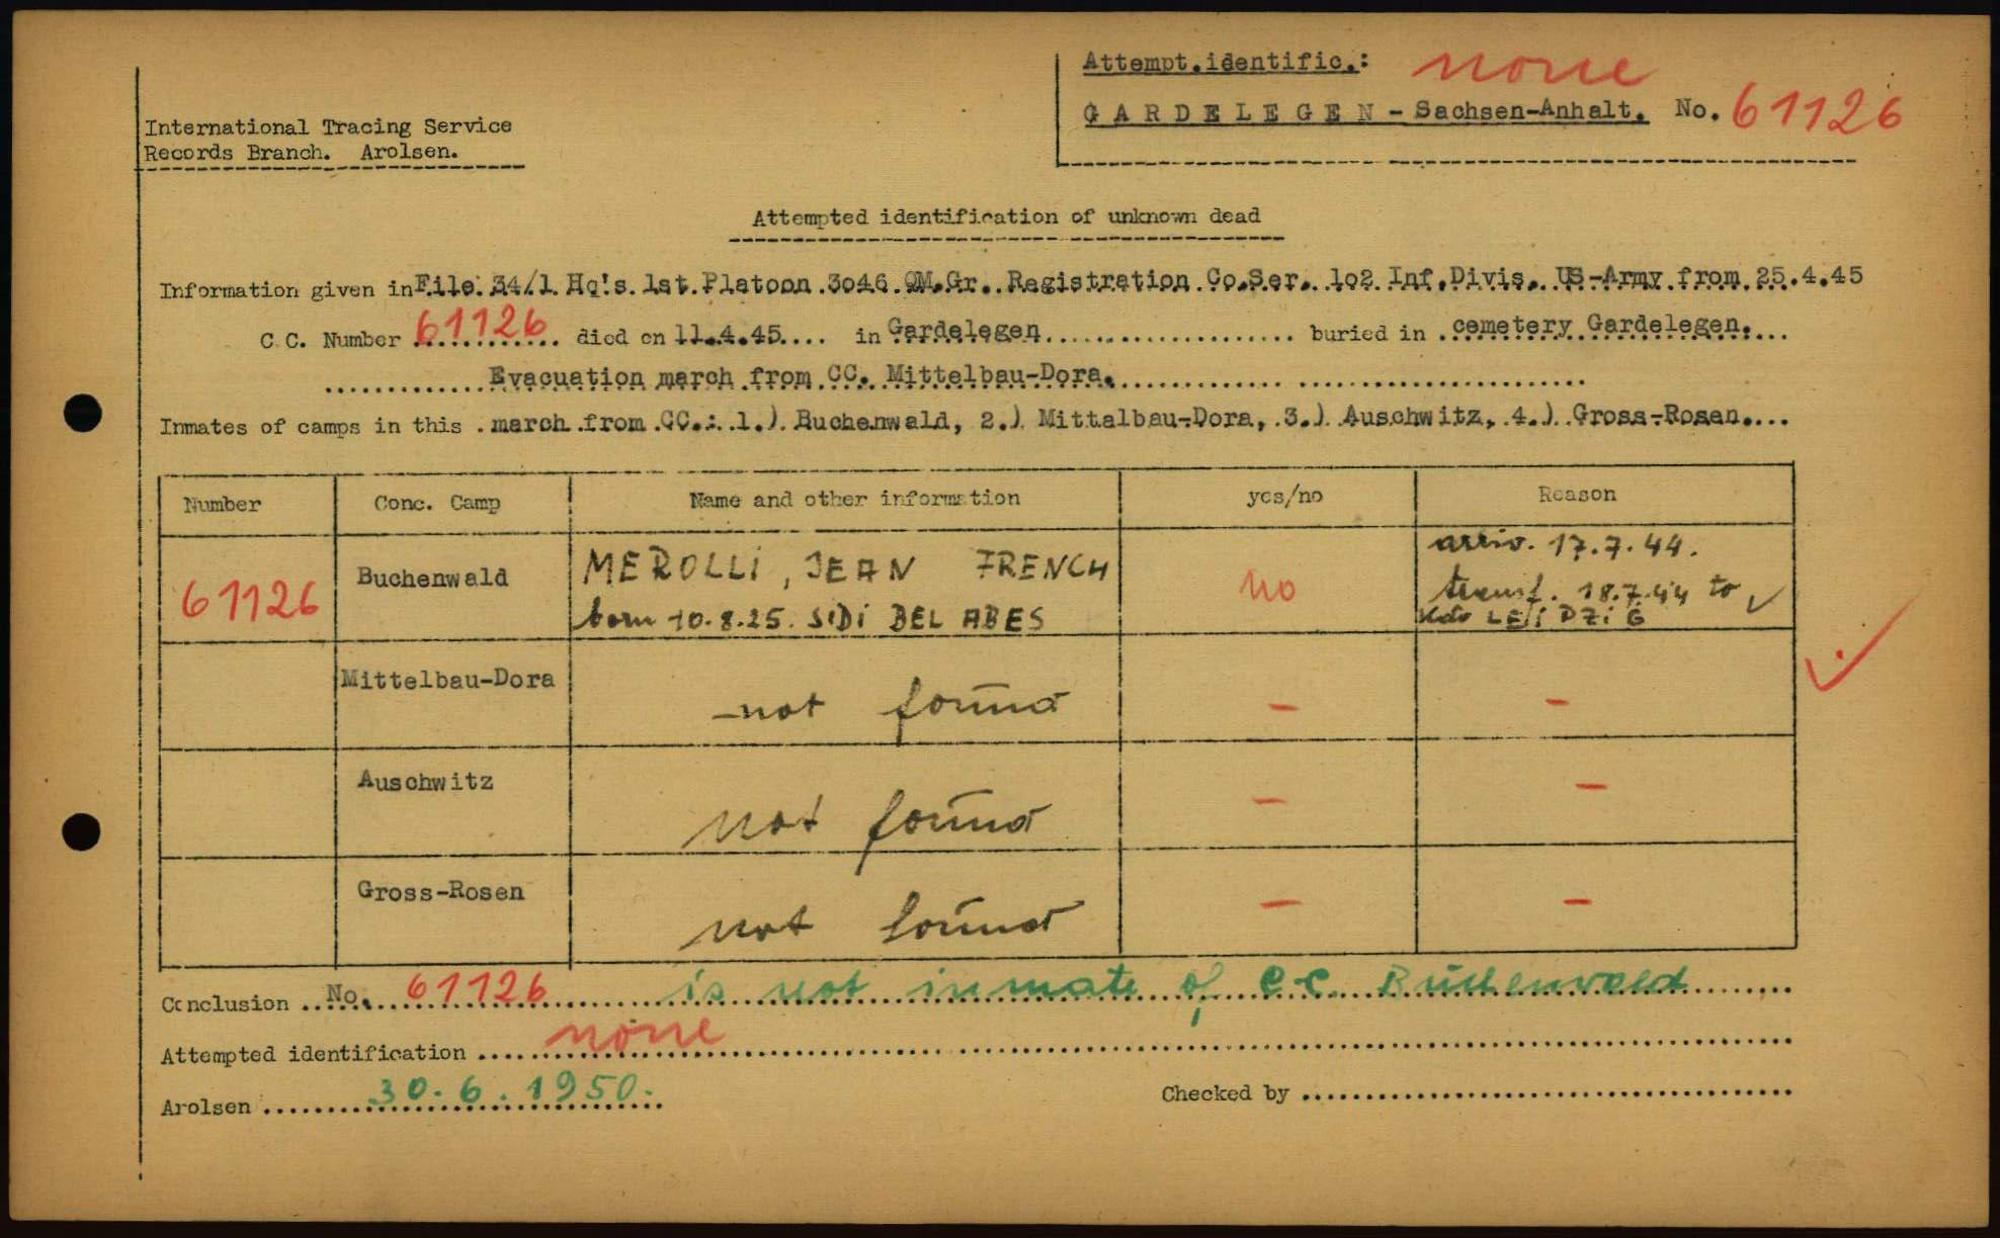 Attempt.identific.: none
GARDELEGEN - Sachsen-Anhalt. No. 61126
International Tracing Service
Records Branch. Arolsen.
Attempted identification of unknown dead
Information given in File 34/1 Hq's. 1st.Platoon 3o46 QM.Gr. Registration Co.Ser. 1o2 Inf.Divis. US-Army from 25.4.45
C.C. Number 61126 died on 11.4.45.... in Gardelegen buried in cemetery Gardelegen.
Evacuation march from CC. Mittelbau-Dora.
Inmates of camps in this march from CC.: 1.) Buchenwald, 2.) Mittalbau-Dora, 3.) Auschwitz, 4.) Gross-Rosen.
Number Conc. Camp Name and other information yes/no Reason
61126 Buchenwald MEROLLI, JEAN FRENCH no arriv. 17.7.44.
born 10.8.25. SIDI BEL ABES transf. 18.7.44 to
Kdo
Mittelbau-Dora not found - -
Auschwitz not found - -
Gross-Rosen not found - -
Conclusion No. 61126 is not inmate of C.C. Buchenwald
Attempted identification none
Arolsen 30.6.1950. Checked by